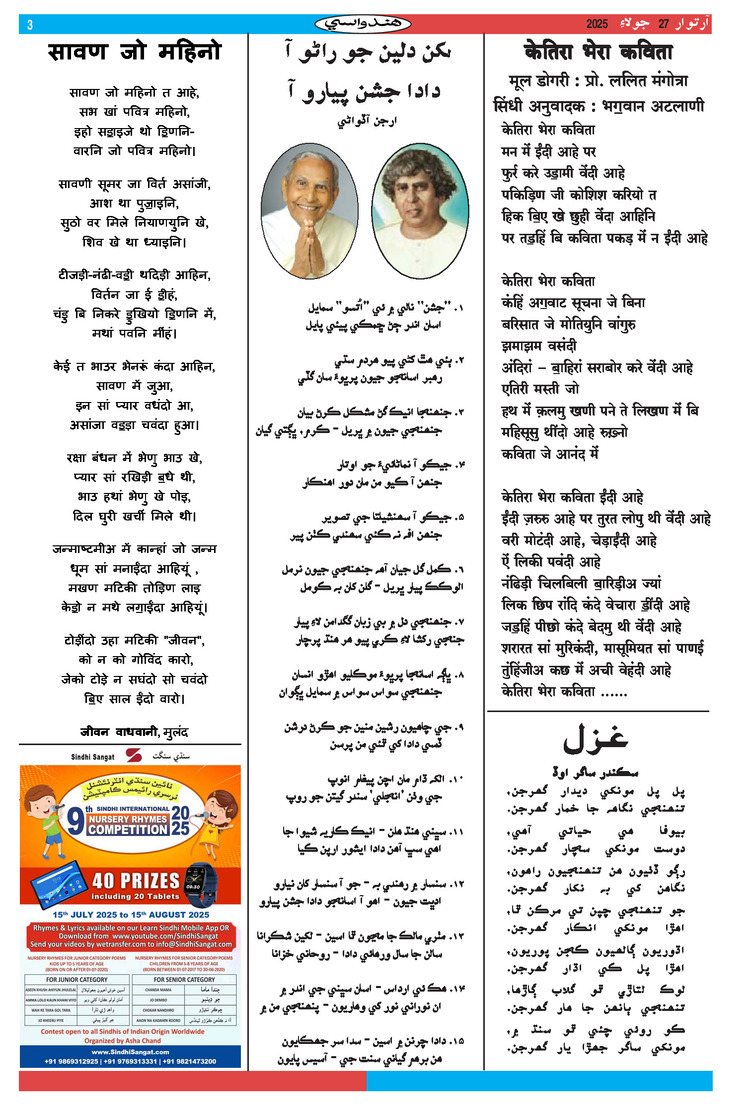 3
هندواسي
آرتوار 27 جولاءِ 2025
सावण जो महिनो
सावण जो महिनो त आहे,
सभ खां पवित्र महिनो,
इहो सॾाइजे थो ॾिणनि-
वारनि जो पवित्र महिनो।
सावणी सूमर जा विर्त असांजी,
आश था पुॼाइनि,
सुठो वर मिले नियाणयुनि खे,
शिव खे था ध्याइनि।
टीजड़ी-नंढी-वॾी थदिड़ी आहिन,
विर्तन जा ई ॾींहं,
चंडु बि निकरे ॾुखियो ॾिणनि में,
मथां पवनि मींहं।
केई त भाउर भेनरूं कंदा आहिन,
सावण में जुआ,
इन सां प्यार वधंदो आ,
असांजा वॾड़ा चवंदा हुआ।
रक्षा बंधन में भेणु भाउ खे,
प्यार सां रखिड़ी ॿधे थी,
भाउ हथां भेणु खे पोइ,
दिल घुरी खर्ची मिले थी।
जन्माष्टमीअ में कान्हां जो जन्म
धूम सां मनाईंदा आहियूं ,
मखण मटिकी तोड़िण लाइ
केॾो न मथे लॻाईंदा आहियूं।
टोड़ींदो उहा मटिकी "जीवन",
को न को गोविंद कारो,
जेको टोड़े न सघंदो सो चवंदो
ॿिए साल ईंदो वारो।
जीवन वाधवानी, मुलंद
Sindhi Sangat
سنڌي سنگت
نائين سنڌي انٽرنئشنل
نرسري رائيمس ڪامپٽيشن
9th SINDHI INTERNATIONAL
NURSERY RHYMES
COMPETITION
2025
40 PRIZES
including 20 Tablets
15th JULY 2025 to 15th AUGUST 2025
Rhymes & Lyrics available on our Learn Sindhi Mobile App OR
Download from www.youtube.com/SindhiSangat
Send your videos by wetransfer.com to info@SindhiSangat.com
NURSERY RHYMES FOR JUNIOR CATEGORY POEMS
KIDS UP TO 5 YEARS OF AGE
(BORN ON OR AFTER 01-07-2020)
NURSERY RHYMES FOR SENIOR CATEGORY POEMS
CHILDREN FROM 5-8 YEARS OF AGE
(BORN BETWEEN 01-07-2017 TO 30-06-2020)
FOR JUNIOR CATEGORY
FOR SENIOR CATEGORY
CHANDA MAMA
چنڊا ماما
JO DENIBO
WAH RE TARA GOL
CHOKAR NANDHRO
JO KHEERU PIYE
Contest open to all Sindhis of Indian Origin Worldwide
Organized by Asha Chand
www.SindhiSangat.com
+91 9869312925 | +91 9769313331 | +91 9821473200
لکن دلين جو راڻو آ
دادا جشن پيارو آ
ارجن آڏواڻي
۱. "جشن" نالي ۾ ئي "اُتسو" سمايل
اسان اندر ڄڻ ڇمڪي پيئي پايل
۲. ٻئي هٿ کڻي پيو هردم سڏي
رهبر اسانجو جيون پرڀوءَ سان گڏي
۳. جنهنجا انيڪ گڻ مشڪل ڪرڻ بيان
جنهنجي جيون ۾ ڀريل - ڪرم، ڀڳتي گيان
۴. جيڪو آ نماڻائيءَ جو اوتار
جنهن آ ڪيو من مان دور اهنڪار
۵. جيڪو آ سهنشيلتا جي تصوير
جنهن اف نہ ڪئي سهندي ڪٺن پير
۶. ڪمل گل جيان آهہ جنهنجي جيون نرمل
الوڪڪ پيار ڀريل - گلن کان بہ ڪومل
۷. جنهنجي دل ۾ بي زبان گگدامن لاءِ پيار
جنهجي رکشا لاءِ ڪري پيو هر هنڌ پرچار
۸. ڀاڳہ اسانجا پرڀوءَ موڪليو اهڙو انسان
جنهنجي سواس سواس ۾ سمايل ڀڳوان
۹. جي چاهيون رشين منين جو ڪرڻ درشن
ڏسي دادا کي ٿئي من پرسن
۱۰. الکہ ڌام مان اچن پيغام انوپ
جي وٺن 'انڃلي' سندر گيتن جو روپ
۱۱. سڀني هنڌ هلن - انيڪ ڪاريہ شيوا جا
اهي سڀ آهن دادا ايشور ارپن ڪيا
۱۲. سنسار ۾ رهندي بہ - جو آ سنسار کان نيارو
اديت جيون - اهو آ اسانجو دادا جشن پيارو
۱۳. مٿري مالڪ جا مڃون ٿا اسين - لکين شڪرانا
سالن جا سال ورهائي دادا - روحاني خزانا
۱۴. هڪ ئي ارداس - اسان سڀني جي اندر ۾
ان نوراني نور کي وهاريون - پنهنجي من ۾
۱۵. دادا چرنن ۾ اسين - سدا سر جهڪايون
هن برهم گياني سنت جي - آسيس پايون
केतिरा भेरा कविता
मूल डोगरी : प्रो. ललित मंगोत्रा
सिंधी अनुवादक : भगवान अटलाणी
केतिरा भेरा कविता
मन में ईंदी आहे पर
फुर्र करे उॾामी वेंदी आहे
पकिड़िण जी कोशिश करियो त
हिक ॿिए खे छुही वेंदा आहिनि
पर तॾहिं बि कविता पकड़ में न ईंदी आहे
केतिरा भेरा कविता
कंहिं अॻवाट सूचना जे बिना
बरिसात जे मोतियुनि वांगुरु
झमाझम वसंदी
अंदिरां – ॿाहिरां सराबोर करे वेंदी आहे
एतिरी मस्ती जो
हथ में क़लमु खणी पने ते लिखण में बि
महिसूसु थींदो आहे रुख़्नो
कविता जे आनंद में
केतिरा भेरा कविता ईंदी आहे
ईंदी ज़रुरु आहे पर तुरत लोपु थी वेंदी आहे
वरी मोटंदी आहे, चेड़ाईंदी आहे
ऐं लिकी पवंदी आहे
नंढिड़ी चिलबिली ॿारिड़ीअ ज्यां
लिक छिप रांदि कंदे वेचारा ॾींदी आहे
जॾहिं पीछो कंदे बेदमु थी वेंदी आहे
शरारत सां मुरिकंदी, मासूमियत सां पाणई
तुंहिंजीअ कछ में अची वेहंदी आहे
केतिरा भेरा कविता ......
غزل
سڪندر ساگر اوڏ
پل پل مونکي ديدار گهرجن،
تنهنجي نگاهہ جا خمار گهرجن.
بيوفا هي حياتي آهي،
دوست مونکي سچار گهرجن.
رڳو ڏئيون من تنهنجيون راهون،
نگاهن کي بہ نکار گهرجن.
جو تنهنجي چپن تي مرڪن ٿا،
اهڙا مونکي انڪار گهرجن.
اڌوريون ڳالهيون ڪجن پوريون،
اهڙا پل ڪي اڌار گهرجن.
لوڪ لتاڙي ٿو گلاب ڳاڙها،
تنهنجي ٻانهن جا هار گهرجن.
ڪو روئي چئي ٿو سنڌ ۾،
مونکي ساگر جهڙا يار گهرجن.